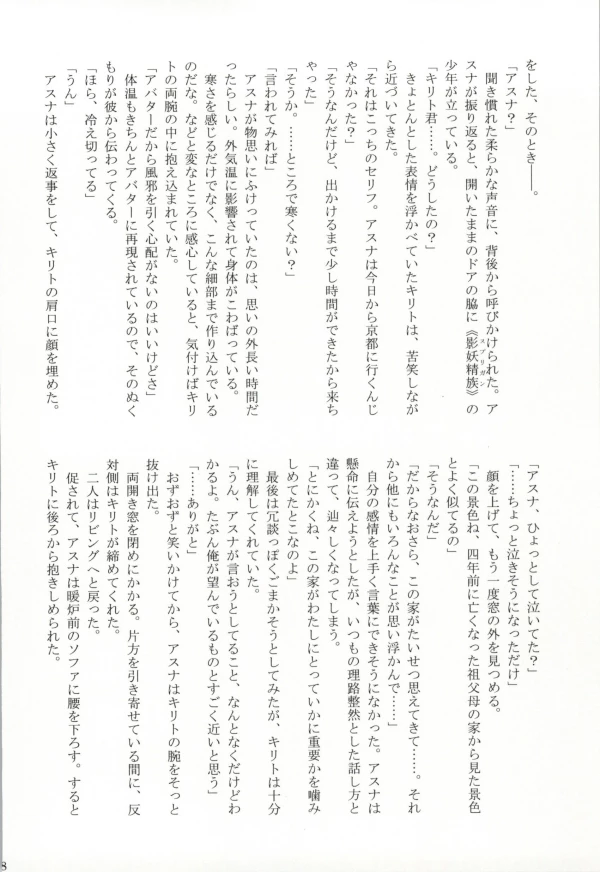 をした、そのとき――。
「アスナ？」
　聞き慣れた柔らかな声音に、背後から呼びかけられた。ア
スナが振り返ると、開いたままのドアの脇に《影妖精族》の
スプリガン
少年が立っている。
「キリト君……。どうしたの？」
　きょとんとした表情を浮かべていたキリトは、苦笑しなが
ら近づいてきた。
「それはこっちのセリフ。アスナは今日から京都に行くんじ
ゃなかった？」
「そうなんだけど、出かけるまで少し時間ができたから来ち
ゃった」
「そうか。……ところで寒くない？」
「言われてみれば」
　アスナが物思いにふけっていたのは、思いの外長い時間だ
ったらしい。外気温に影響されて身体がこわばっている。
　寒さを感じるだけでなく、こんな細部まで作り込んでいる
のだな。などと変なところに感心していると、気付けばキリ
トの両腕の中に抱え込まれていた。
「アバターだから風邪を引く心配がないのはいいけどさ」
　体温もきちんとアバターに再現されているので、そのぬく
もりが彼から伝わってくる。
「ほら、冷え切ってる」
「うん」
　アスナは小さく返事をして、キリトの肩口に顔を埋めた。
「アスナ、ひょっとして泣いてた？」
「……ちょっと泣きそうになっただけ」
　顔を上げて、もう一度窓の外を見つめる。
「この景色ね、四年前に亡くなった祖父母の家から見た景色
とよく似てるの」
「そうなんだ」
「だからなおさら、この家がたいせつ思えてきて……。それ
から他にもいろんなことが思い浮かんで……」
　自分の感情を上手く言葉にできそうになかった。アスナは
懸命に伝えようとしたが、いつもの理路整然とした話し方と
違って、辿々しくなってしまう。
「とにかくね、この家がわたしにとっていかに重要かを噛み
しめてたとこなのよ」
　最後は冗談っぽくごまかそうとしてみたが、キリトは十分
に理解してくれていた。
「うん、アスナが言おうとしてること、なんとなくだけどわ
かるよ。たぶん俺が望んでいるものとすごく近いと思う」
「……ありがと」
　おずおずと笑いかけてから、アスナはキリトの腕をそっと
抜け出た。
　両開き窓を閉めにかかる。片方を引き寄せている間に、反
対側はキリトが締めてくれた。
　二人はリビングへと戻った。
　促されて、アスナは暖炉前のソファに腰を下ろす。すると
キリトに後ろから抱きしめられた。
8